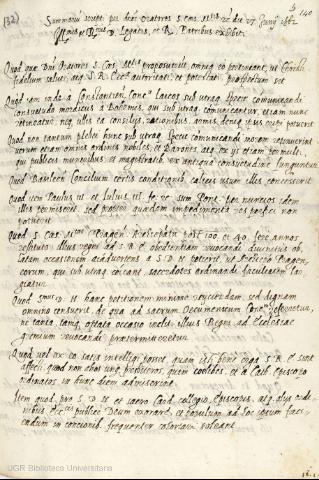 (32) 140
Summarium scripti per dnos Oratores S. Caes. M.tis die 27 Junij 1562
Ill.mis et R.mis D. Legatis, et R. Patribus exhibiti.
Quod ipsi Dni Oratores S. Caes. M.tis proposuerint, omnia eo pertineant, ut Consilium
fidelium salvet, atq. S. R. Ecc.ae authoritati, et potestati prospectum sit
Quod iam inde a Constantien. Conc.o Laicos sub utraq. specie communicandi
consuetudo mordicus a Bohemis, qui sub utraq. communicantur, etiam nunc
retineatur neq. illis ea consilijs, rationibus, armis, deniq. vi eripi potuerit
Quod non tantum plebei hunc sub utraq. specie communicandi morem retinuerint
verum etiam omnis ordinis nobiles, et Barones, atq. ex ijs etiam non nulli,
qui publicis muneribus et magistratib. ex antiqua consuetudine funguntur.
Quod Basileen. Concilium certis conditionib. calicis usum illis concesserit
Quod item Paulus iii. et Iulius iii. fe. re. sum. Pont. per nuncios idem
illis permiserit, sed propter quaedam impedimenta res perfici non
potuerit
Quod S. Caes. M.tas Pragen. Archiepatu post 100. et 40. fere annos
restituto illius regni ad S. R. E. obedientiam revocandi
etiam occasionem a S. D. N. petierit, ut Archiepo Pragen.
eorum, qui sub utraq. communicant, sacerdotes ordinandi facultatem lar-
giatur.
Quod S.mus D. N. hanc petitionem minime reijciendam, sed dignam
omnino censuerit, de qua ad sacrum Oecumenicum Conc.m referretur,
ne tanta, tamq. optata occasio illius Regni ad Ecclesiae
gremium revocandi praetermitteretur
Quod vel ex eo satis intelligi posset quam isti bene erga S. R. E. sint
affecti, quod non alios unq. presbyteros, quam coelibes, et a Cath. Episcopo
ordinatos in hunc diem admiserint
Item quod pro S. D. N. et sacro Card. collegio, Episcopis, atq. alijs ordi-
nibus Ecc.cis publice Deum exorare, et populum ad hoc ipsum faci-
endum in concionib. frequenter cohortari soleant.
UGR Biblioteca Universitaria